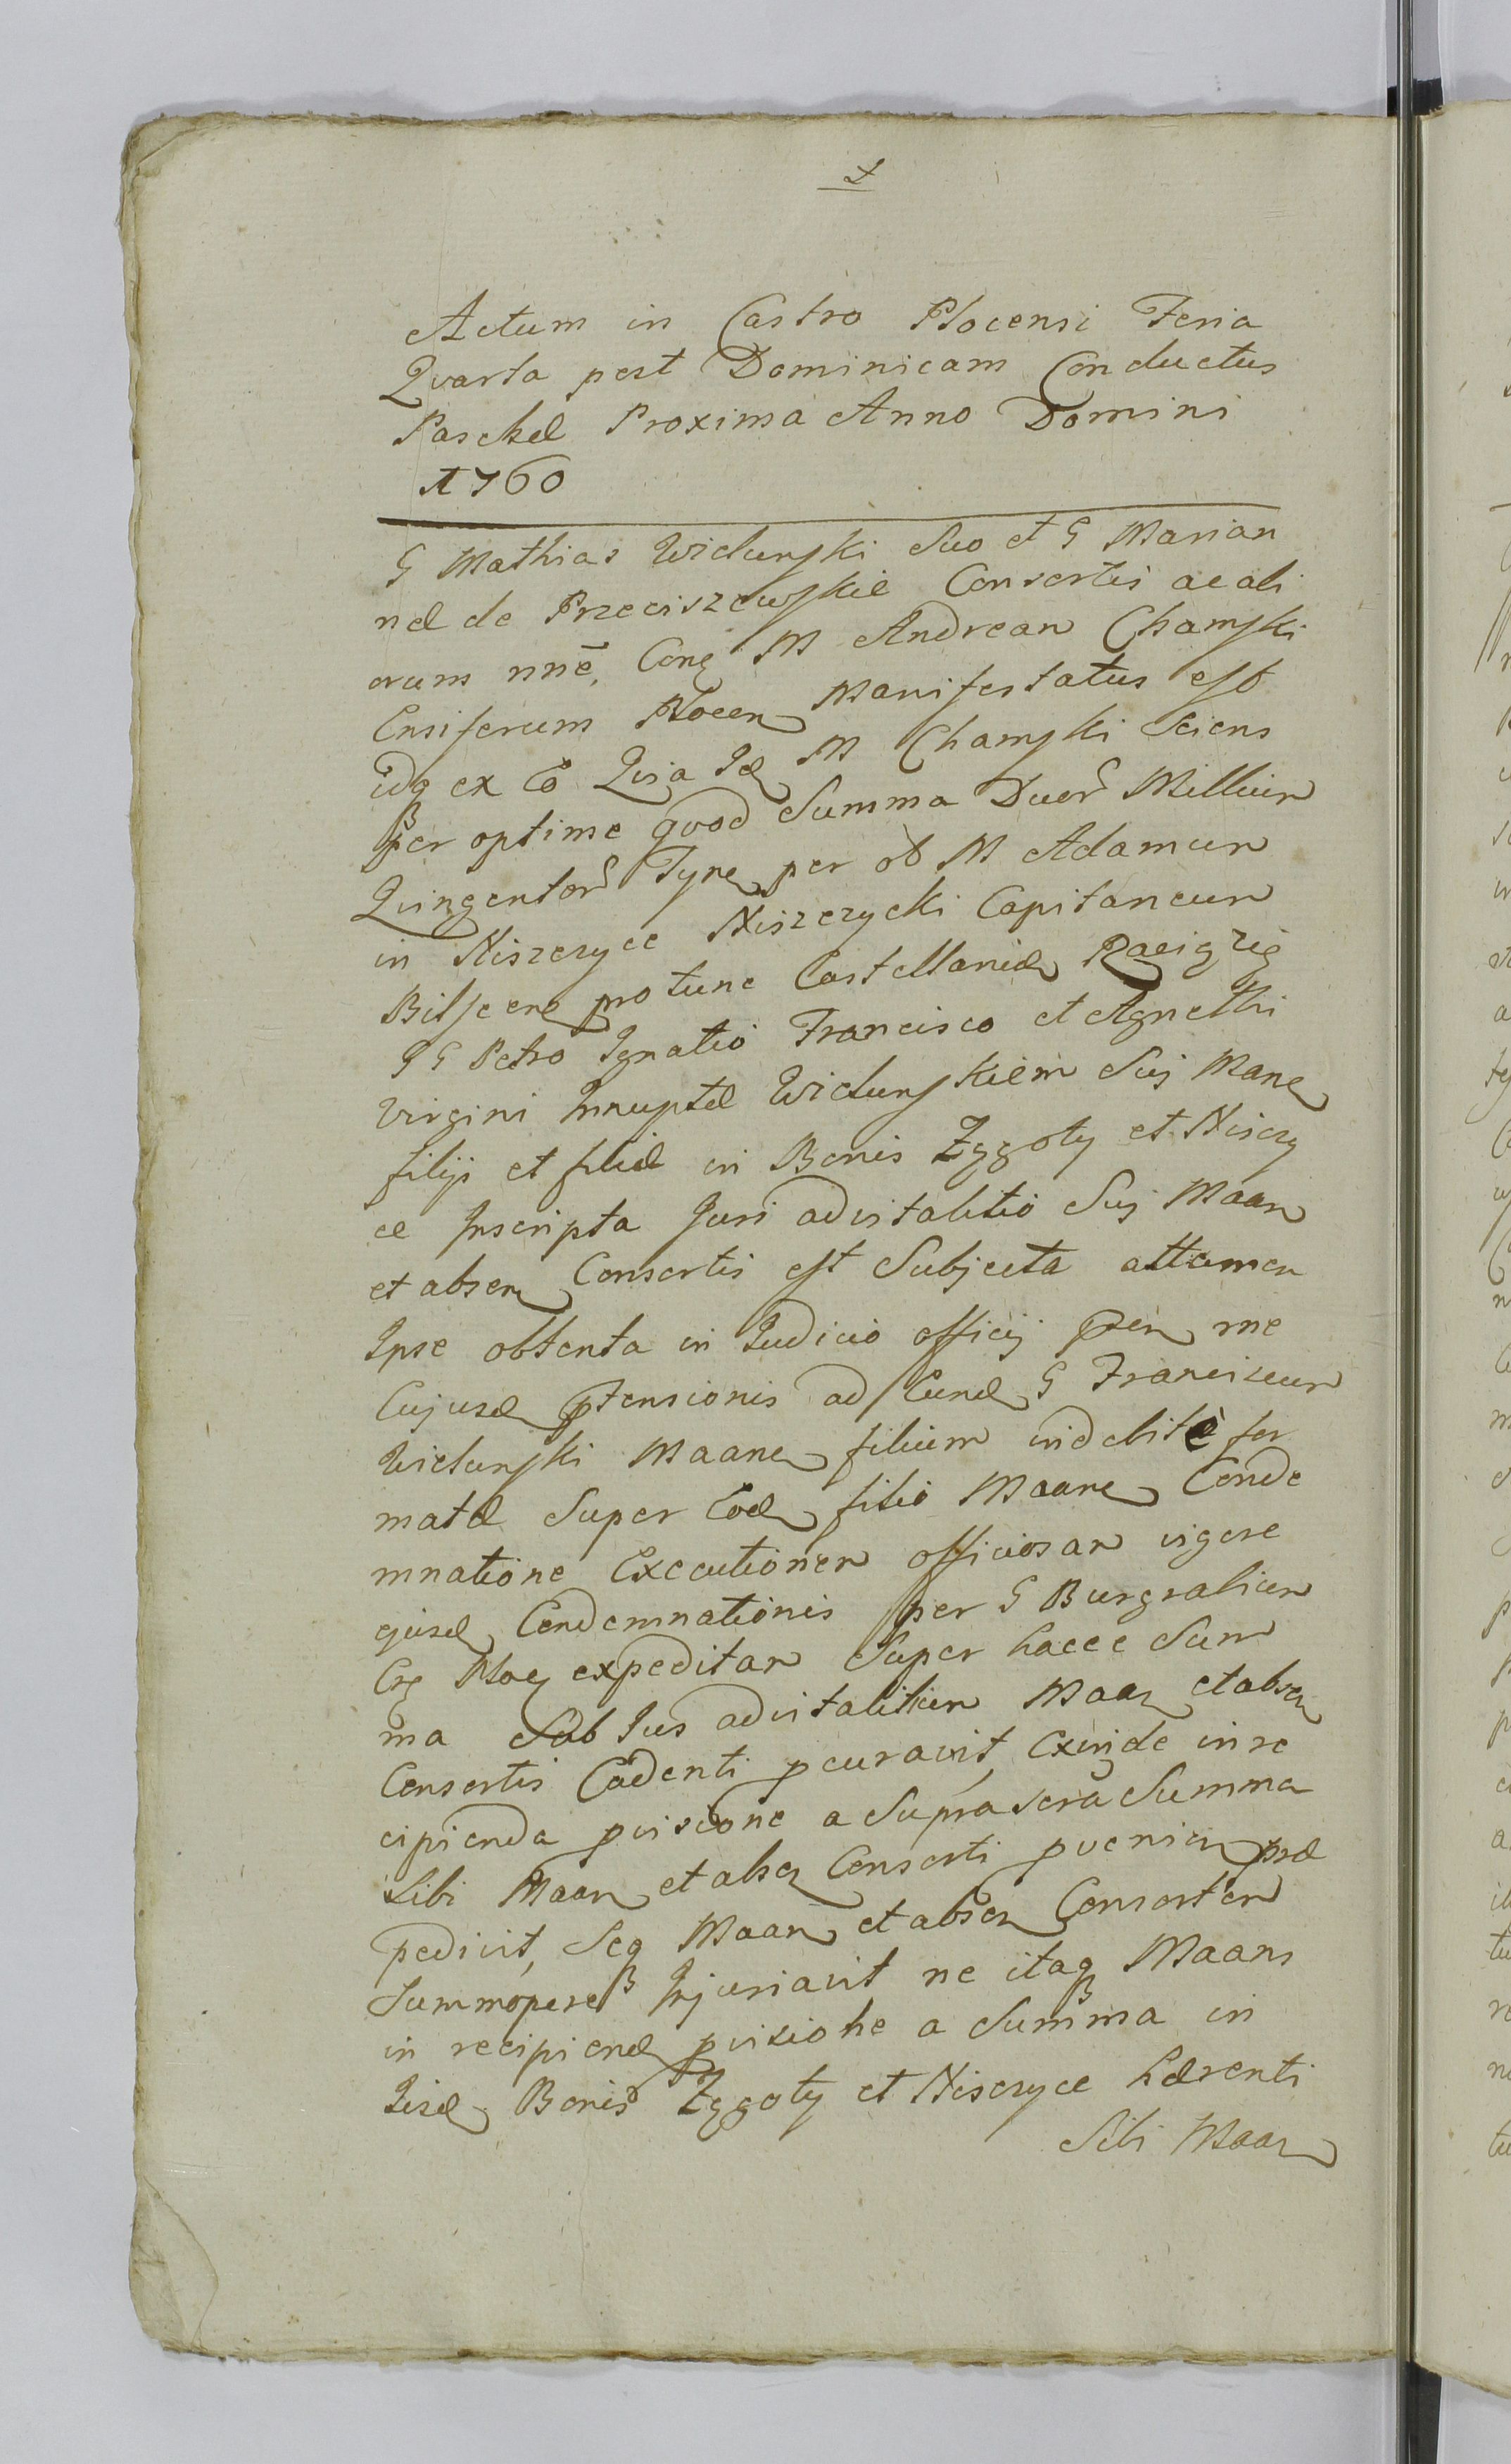 Actum in Castro Plocensi Feria
Qvarta post Dominicam Conductus
Paschæ Proxima Anno Domini
1760
G Mathias Widunski Suo et G Marian
næ de Przeciszewskie Consortis ac ali
orum nnē. Cong M Andrean Chamski
Ensiferum Plocen Manifestatus est
idq ex Eo Quia Id M Chamski Sciens
per optime qvod Summa Duor Millium
Qvingentor Tynf per ol M Adamum
in Niszczyce Niszczycki Capitaneum
Bilscen protunc Castellanid Raciąż
G G Petro Ignatio Francisco et Agnethi
Virgini Innuptæ Widunskiem Suj Man
filijs et filiæ in Bonis Zągoty et Niszczy
ce Inscripta Juri advitalitio Suj Maan
et absen Consortis est Subjecta attamen
Ipse obtenta in Judicio officij pen me
Cujusd ptensionis ad Eund G Franciscum
Widunski Maane filium indebitè for
matæ Super Eod filio Maane Conde
mnatione Executionem officiosam vigore
ejusd Condemnationis per G Burgrabium
Crg Ploc expeditam Super hacce Sum
ma Sub Jus advitalitium Maan et absen
Consortis Cadenti pcuravit, Exinde in re
cipienda pvisione a Suprascra Summa
Sibi Maan et absen Consorti pvenien præ
pedivit, Seq Maan et absen Consortem
Summopere Injuriavit ne itaq Maans
in recipiend pvisione a Summa in
Iisd Bonis Zągoty et Niszczyce hærenti
Sibi Maan